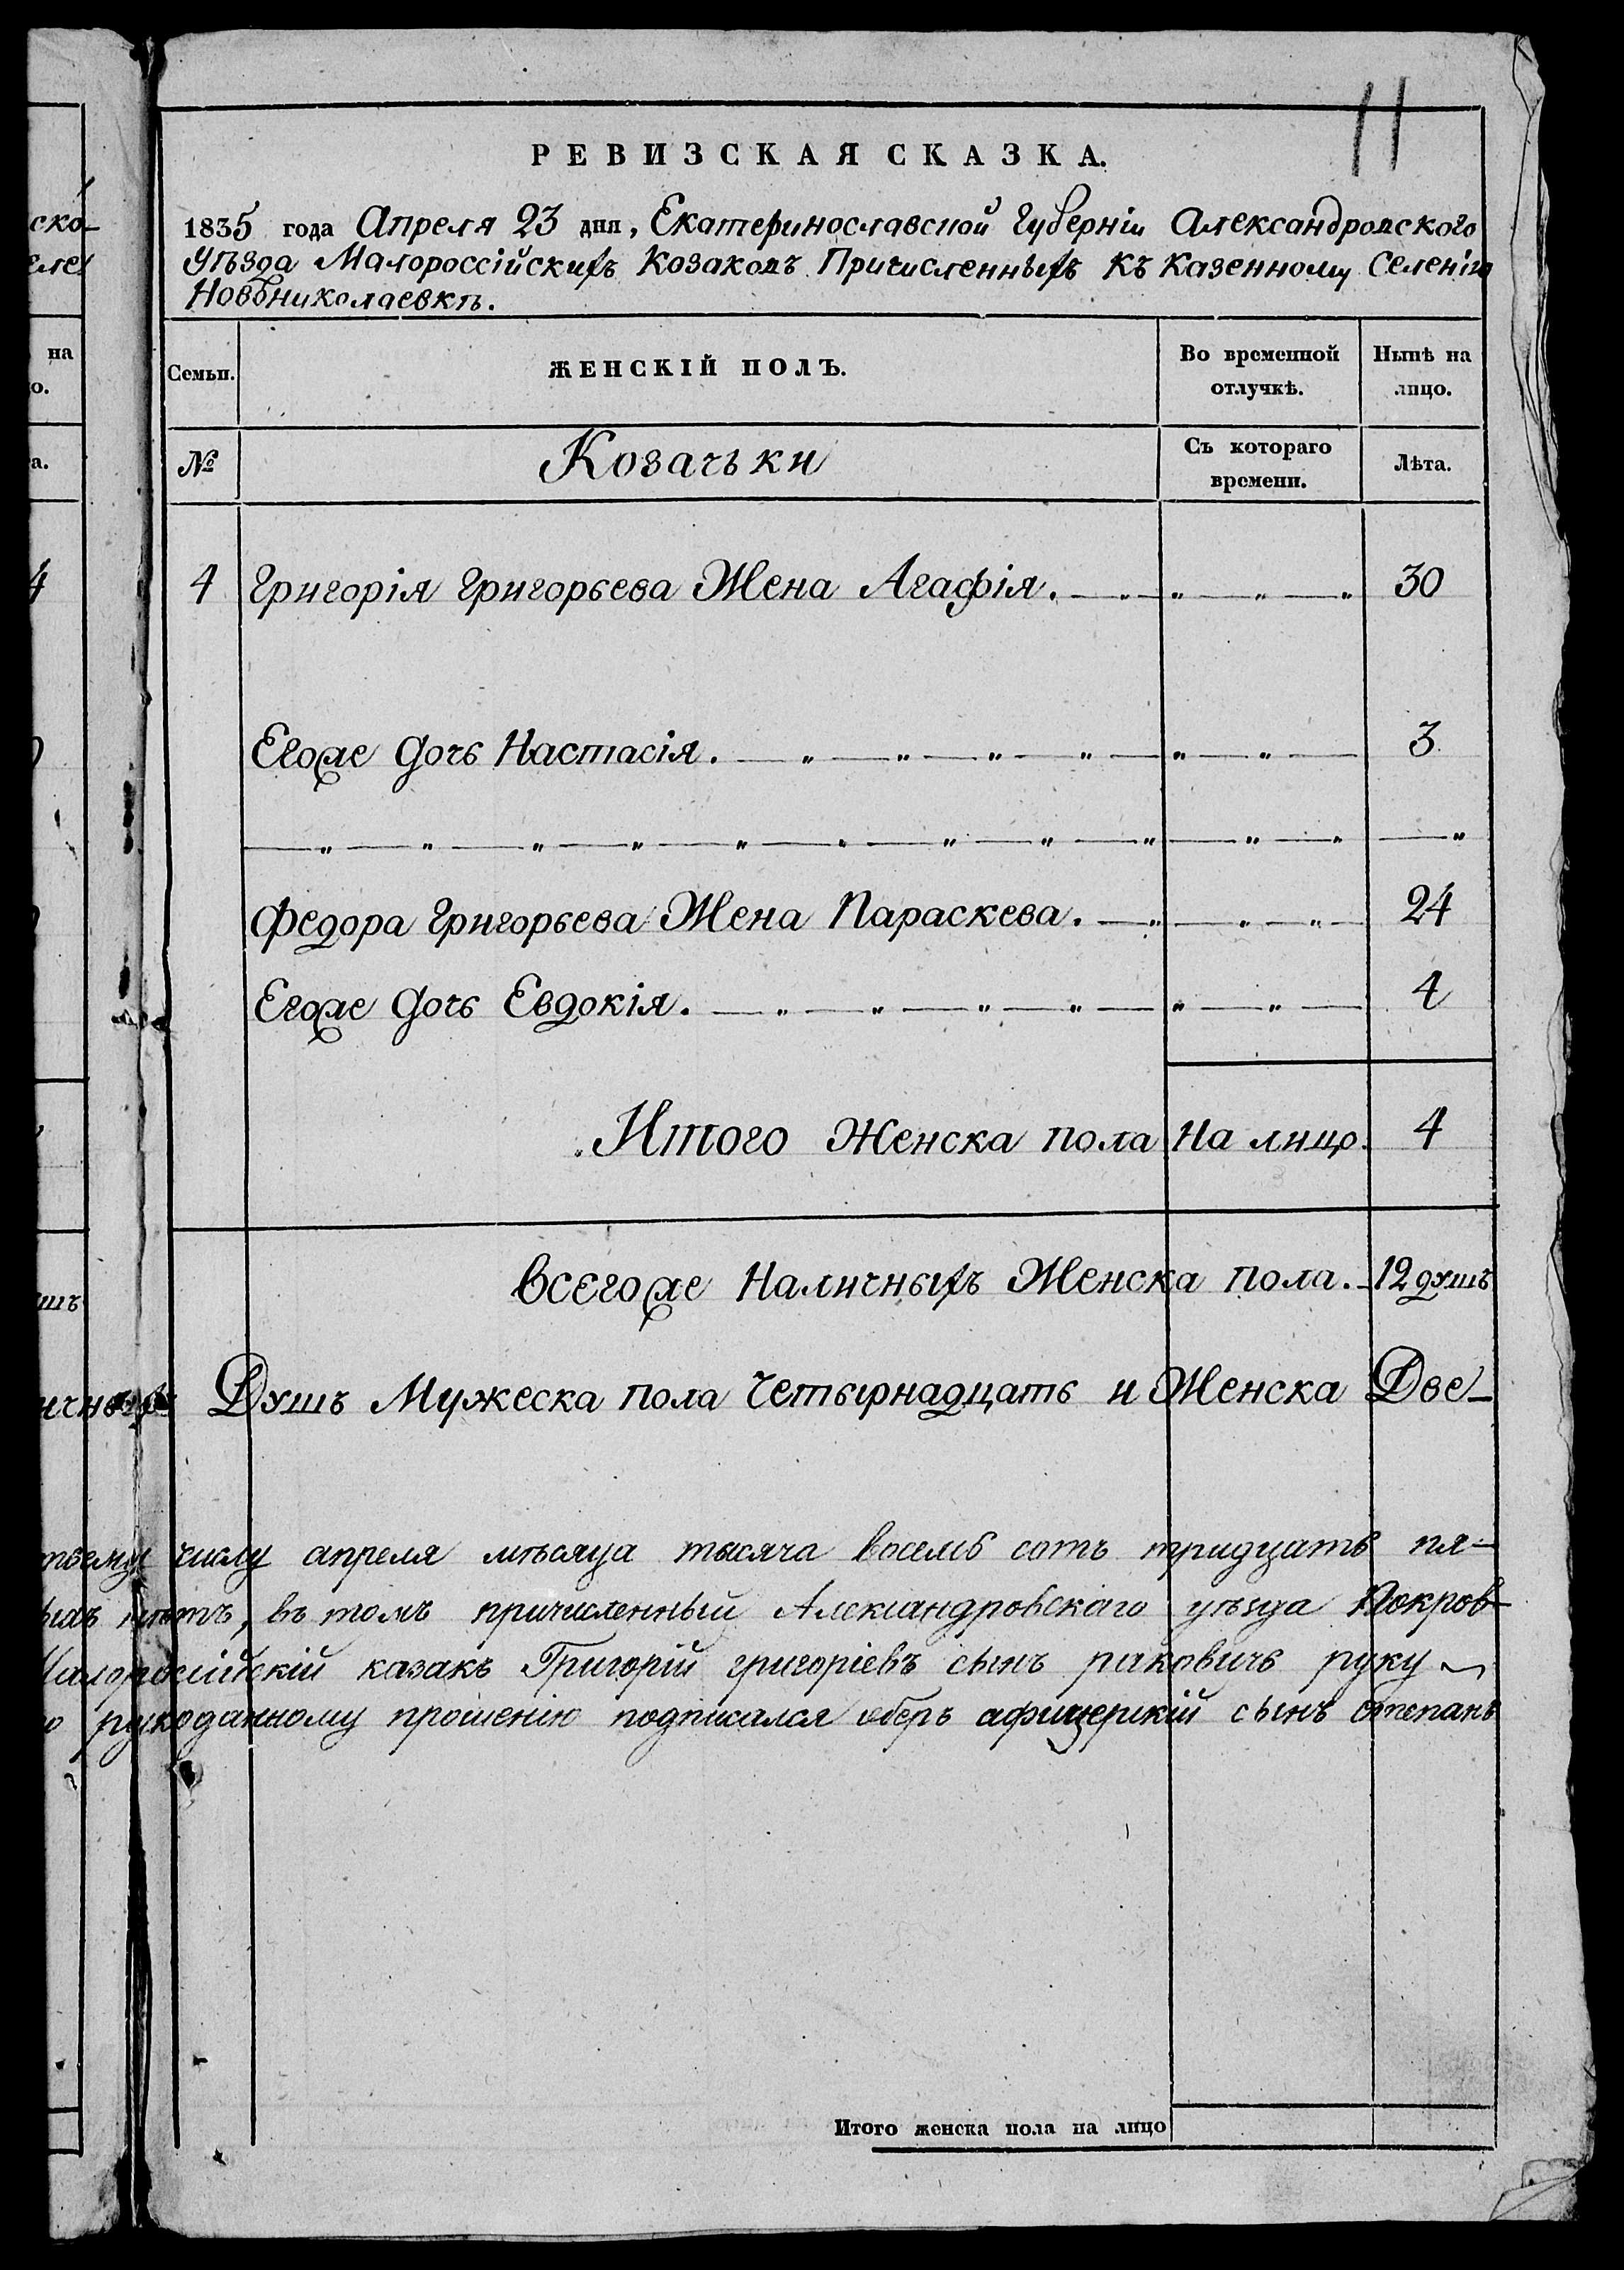 11
РЕВИЗСКАЯ СКАЗКА.
1835 года Апреля 23 дня, Екатеринославской Губерніи Александровского
Уѣзда Малороссійскихъ Козаковъ Причисленныхъ къ Казенному Селенію
Новониколаевкѣ.
Семьи. ЖЕНСКІЙ ПОЛЪ. Во временной отлучкѣ. Нынѣ на лицо.
№ Козачьки Съ котораго времени. Лѣта.
4 Григорія Григорьева Жена Агафія. 30
Егоже Дочь Настасія. 3
Федора Григорьева Жена Параскева. 24
Егоже Дочь Евдокія. 4
Итого Женска пола На лицо. 4
Всегоже Наличныхъ Женска пола. 12 душъ
Душъ Мужеска пола Четырнадцать и Женска Две-
числу апреля мѣсяца тысяча восемь сотъ тридцать пя-
лѣтъ, въ томъ причисленный Александровскаго уѣзда Покров-
Малороссійскій казакъ Григорій григоріевъ сынъ раковичь руку
рукоданному прошенію подписался оберъ афицерскій сынъ Степанъ
Итого женска пола на лицо